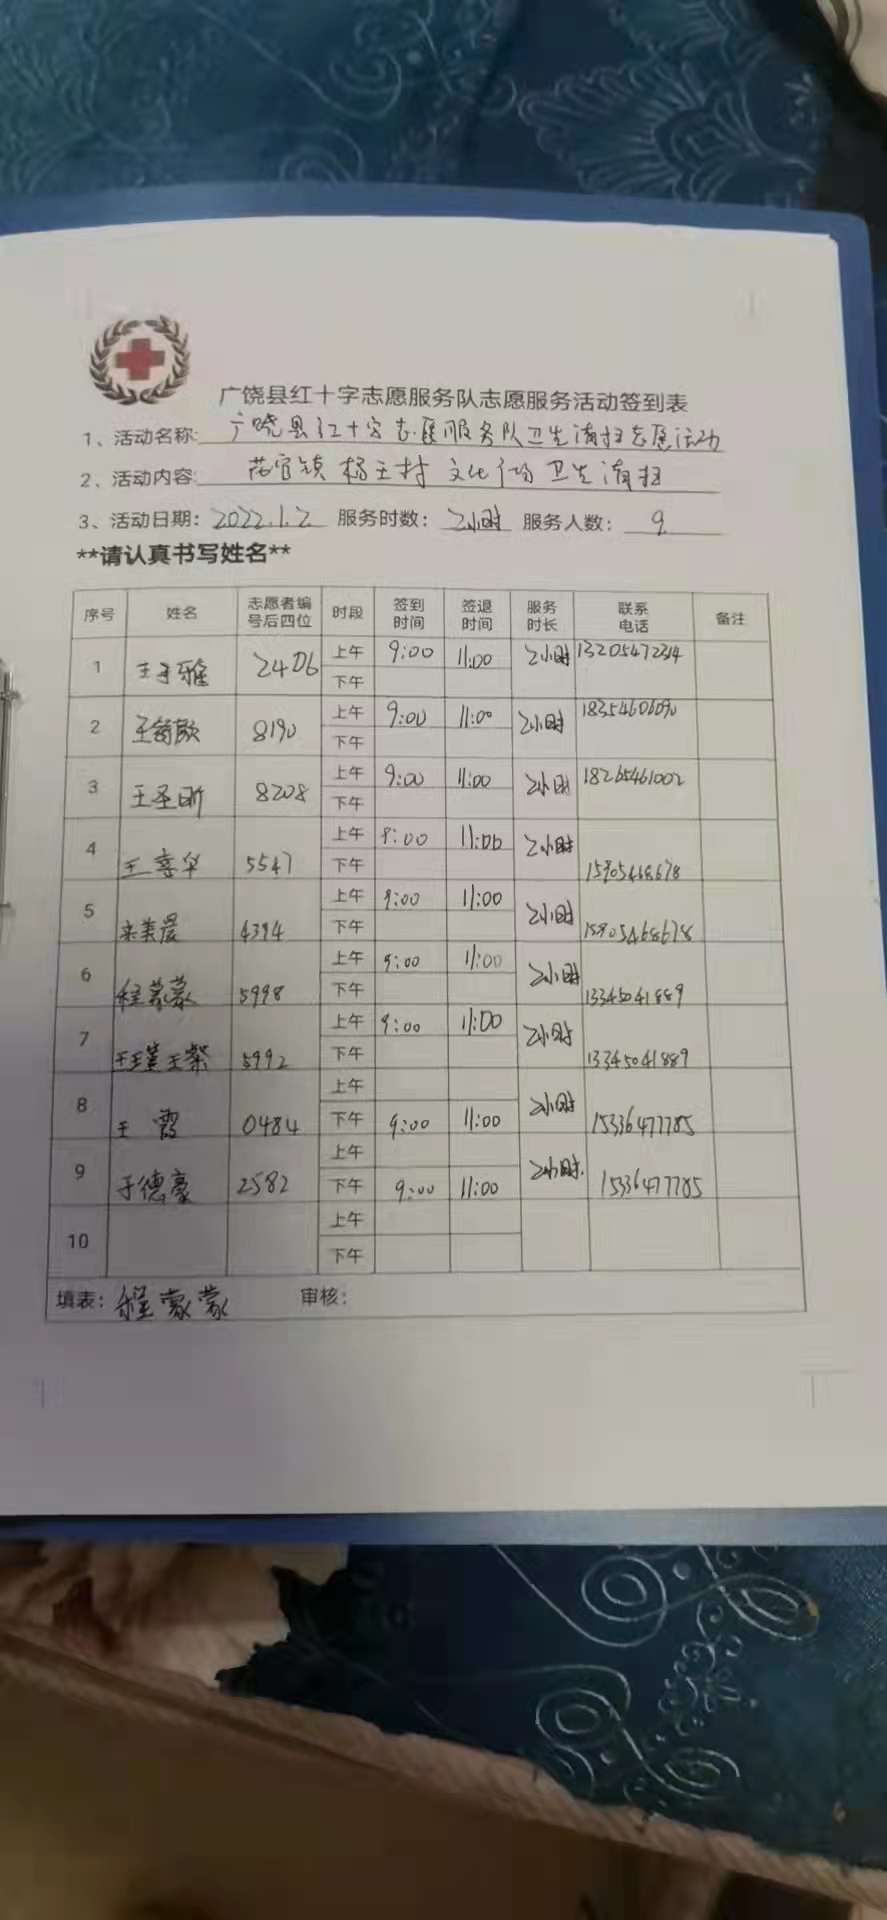 广饶县红十字志愿服务队志愿服务活动签到表
1、活动名称: 广饶县红十字志愿服务队卫生清扫志愿活动
2、活动内容: 官镇杨王村文化广场卫生清扫
3、活动日期: 2022.1.2 服务时数: 2小时 服务人数: 9
**请认真书写姓名**
序号 姓名 志愿者编号后四位 时段 签到时间 签退时间 服务时长 联系电话 备注
1 王子雅 2406 上午 9:00 11:00 2小时 13205472314
下午
2 8190 上午 9:00 11:00 2小时 18354606090
下午
3 王圣昕 8208 上午 9:00 11:00 2小时 18265461002
下午
4 王喜华 5547 上午 9:00 11:00 2小时 15905468678
下午
5 美晨 4394 上午 9:00 11:00 2小时 15905468678
下午
6 程蒙蒙 5998 上午 9:00 11:00 2小时 13345041889
下午
7 5992 上午 9:00 11:00 2小时 13345041889
下午
8 王霞 0484 上午
下午 9:00 11:00 2小时 15336477785
9 于德豪 2582 上午
下午 9:00 11:00 2小时. 15336477785
10 上午
下午
填表: 程蒙蒙 审核: